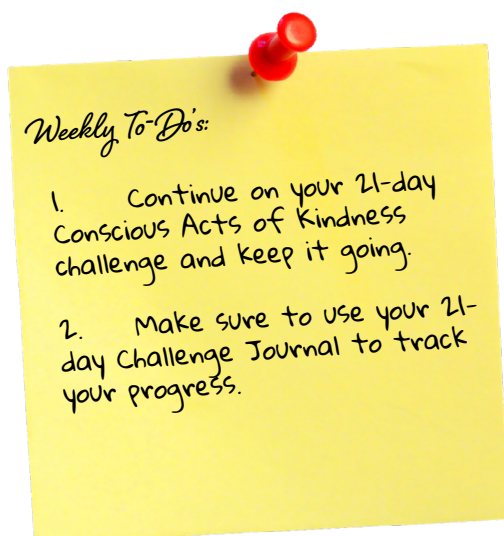 Weekly To-Do's:
1. Continue on your 21-day
Conscious Acts of Kindness
challenge and keep it going.
2. Make sure to use your 21-
day Challenge Journal to track
your progress.